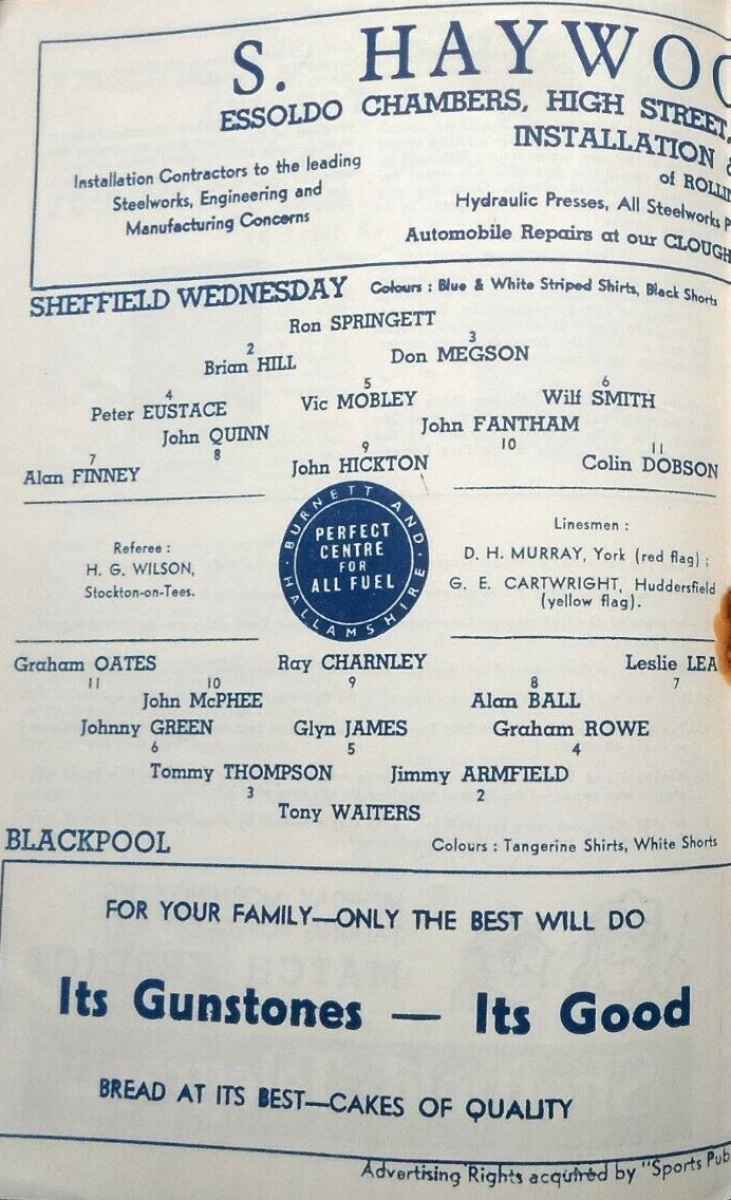 S. HAYWO
ESSOLDO CHAMBERS, HIGH STREET,
INSTALLATION &
of ROLLIN
Installation Contractors to the leading
Steelworks, Engineering and
Manufacturing Concerns
Hydraulic Presses, All Steelworks P
Automobile Repairs at our CLOUGH
SHEFFIELD WEDNESDAY Colours : Blue & White Striped Shirts, Black Shorts
Ron SPRINGETT
2 3
Brian HILL Don MEGSON
4 5 6
Peter EUSTACE Vic MOBLEY Wilf SMITH
John QUINN John FANTHAM
7 8 9 10 11
Alan FINNEY John HICKTON Colin DOBSON
BURNETT AND HALLAMSHIRE
PERFECT
CENTRE
FOR
ALL FUEL
Referee :
H. G. WILSON,
Stockton-on-Tees.
Linesmen :
D. H. MURRAY, York (red flag) ;
G. E. CARTWRIGHT, Huddersfield
(yellow flag).
Graham OATES Ray CHARNLEY Leslie LEA
11 10 9 8 7
John McPHEE Alan BALL
Johnny GREEN Glyn JAMES Graham ROWE
6 5 4
Tommy THOMPSON Jimmy ARMFIELD
3 2
Tony WAITERS
BLACKPOOL Colours : Tangerine Shirts, White Shorts
FOR YOUR FAMILY—ONLY THE BEST WILL DO
Its Gunstones — Its Good
BREAD AT ITS BEST—CAKES OF QUALITY
Advertising Rights acquired by "Sports Pub